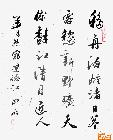 移舟泊烟渚日暮
客愁新野曠天
低樹江清月近人